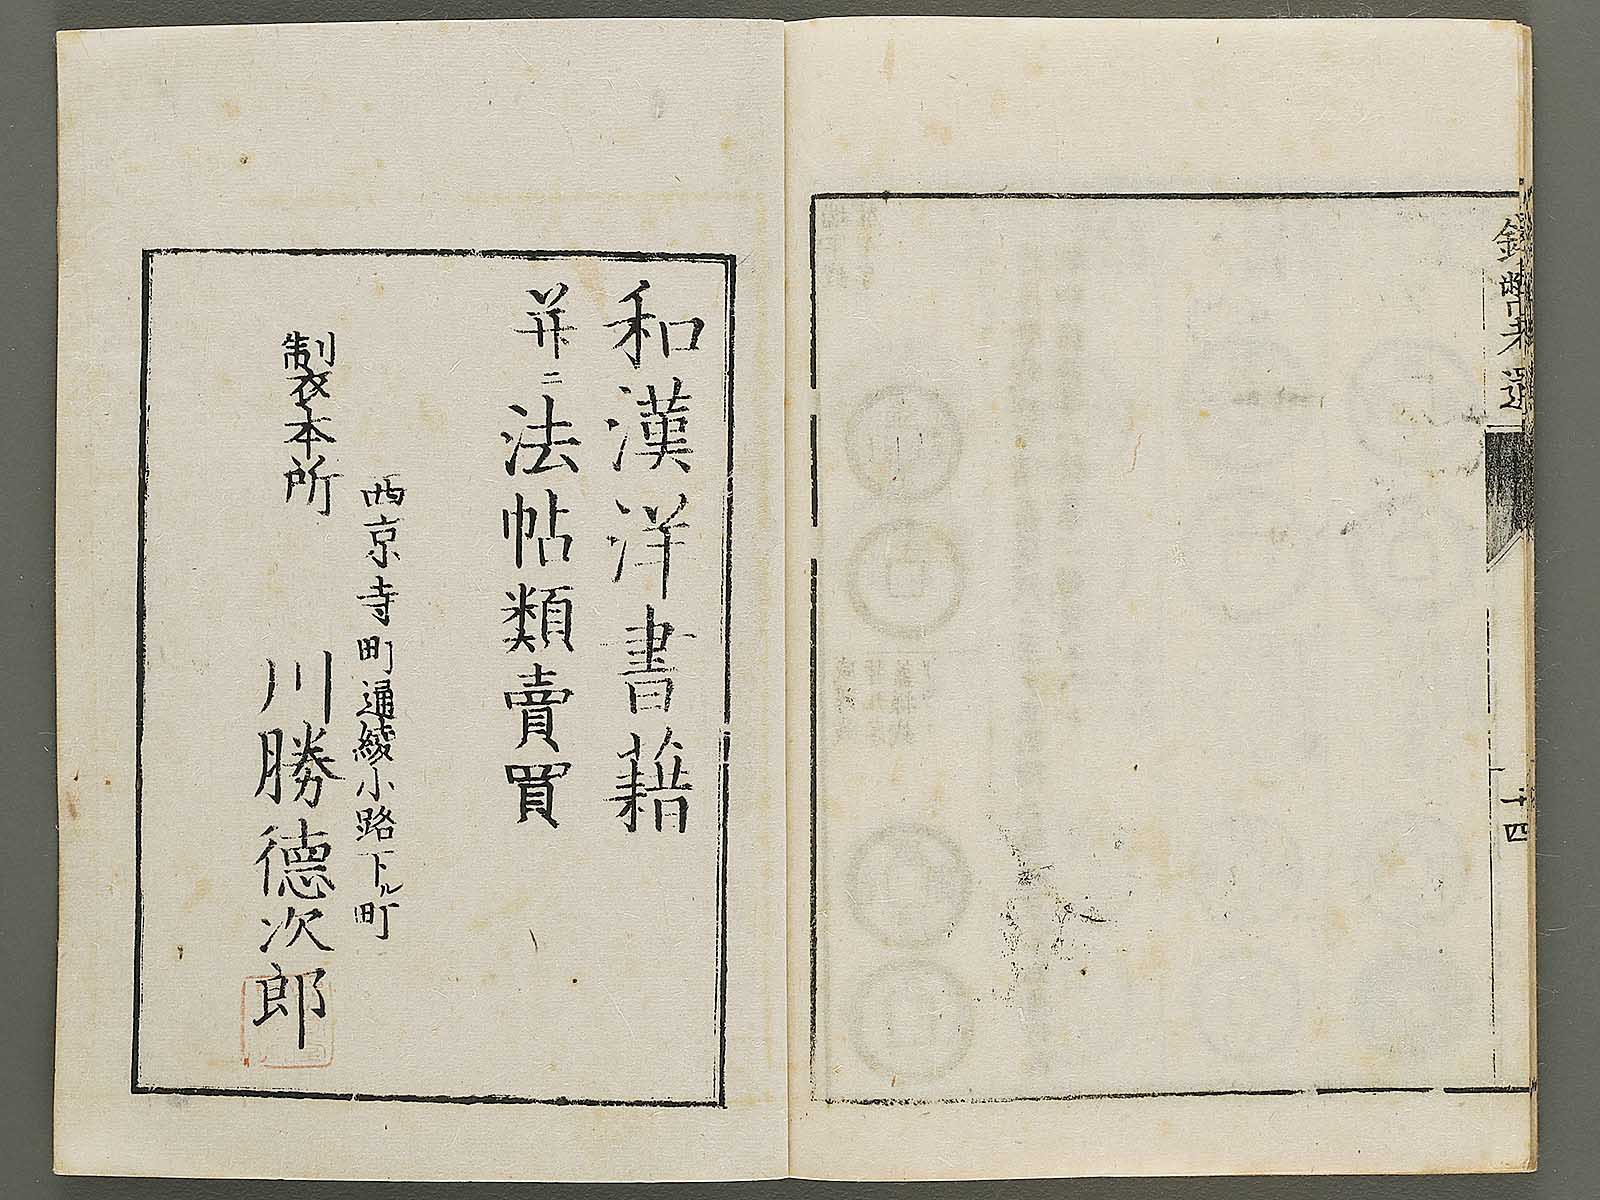 十四
和漢洋書籍
并ニ法帖類賣買
西京寺町通綾小路下ル町
製本所
川勝德次郎